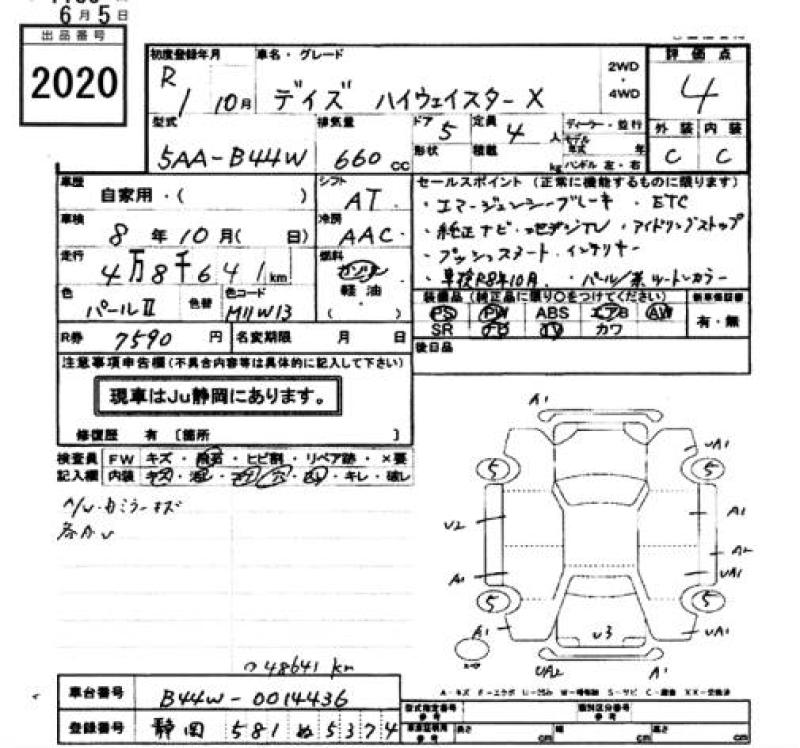 6月5日
出品番号
2020
初度登録年月
R 1 10月
車名・グレード
デイズ ハイウェイスターX
2WD
・
4WD
評価点
4
外装 内装
C C
型式
5AA-B44W
排気量
660 cc
ドア 5
定員 4 人
形状
積載 kg
ディーラー・並行
モデル年式 年
ハンドル 左・右
車歴
自家用・( )
シフト
AT
車検
8年10月( 日)
冷房
AAC
走行
4万8千641km
燃料
ガソリン
軽油
( )
色
パールII
色替
色コード
M11W13
R券 7590 円
名変期限 月 日
セールスポイント(正常に機能するものに限ります)
・エマージェンシーブレーキ ・ETC
・純正ナビ・地デジTV・アイドリングストップ
・プッシュスタート・インテリキー
・車検R8年10月 ・パール/茶ツートンカラー
装備品(純正品に限り○をつけてください)
PS PW ABS エアB AW
SR ナビ TV カワ
新車保証書
有・無
後日品
注意事項申告欄(不具合内容等は具体的に記入して下さい)
現車はJu静岡にあります。
修復歴 有 〔箇所 〕
検査員記入欄
FW キズ・飛石・ヒビ割・リペア跡・×要
内装 キズ・汚レ・コゲ・穴・・キレ・破レ
A/W・ドミラーキズ
各A・U
A1
UA1
5
5
U2
A1
A2
A1
UA1
5
5
A1
U3
UA1
UA2
A1
48641 km
A-キズ F-エクボ U-凹み W-補修跡 S-サビ C-腐食 XX-交換済
車台番号 B44W-0014436
登録番号 静岡 581 ぬ 5374
型式指定番号 参考
類別区分番号 参考
車庫証明用 参考
長さ cm
幅 cm
高さ cm